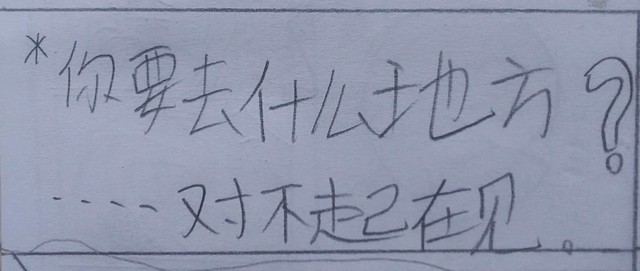 *你要去什么地方?
....对不起在见。